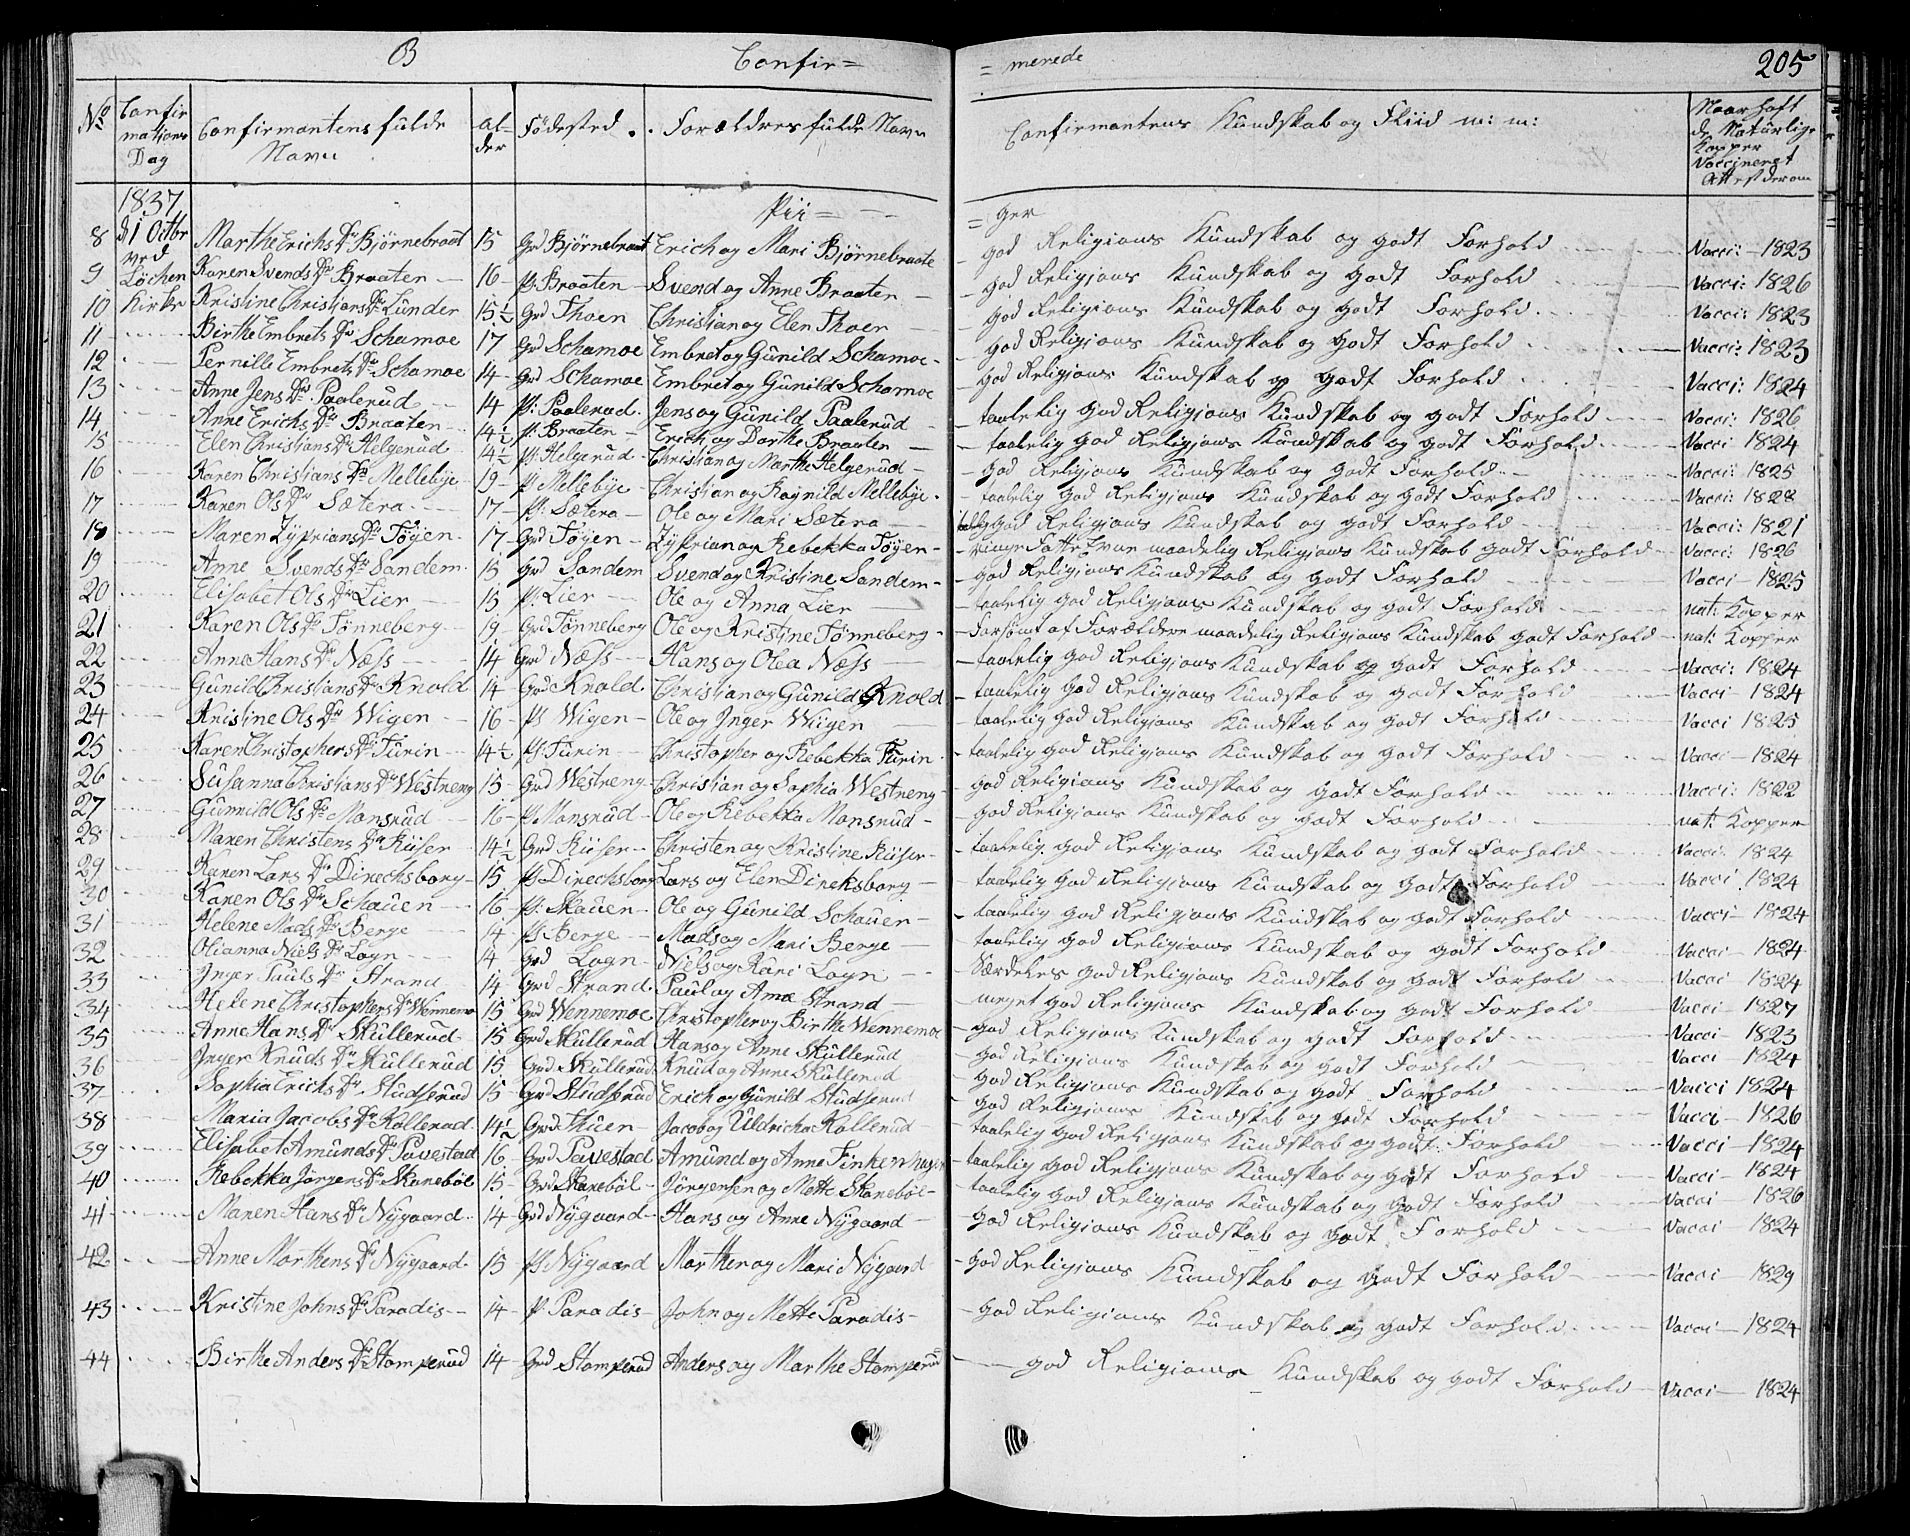 B Confir= = merede 205
No Confirmations Dag Confirmantens fulde Navn Alder Fødested . . Forældres fulde Navn Confirmantens Kundskab og Fliid m: m: Naar haft de Naturlige Kopper Vaccineret Attest derom
1837 Pii= = ger
8 d 1 Octbr Marthe Erichs Dr Bjørnebraat 15 Grd Bjørnebraat Erich og Mari Bjørnebraate god Religions Kundskab og godt Forhold Vacci: 1823
9 ved Løchen Karen Svends Dr Braaten 16 Pl: Braaten Svend og Anne Braaten god Religions Kundskab og godt Forhold Vacci: 1826
10 Kirke Kristine Christians Dr Lunder 15½ Grd Thoen Christian og Elen Thoer god Religions Kundskab og godt Forhold Vacci: 1823
11 Birthe Embrets Dr Schamoe 17 Grd Schamoe Embret og Gunild Schamoe god Religions Kundskab og godt Forhold Vacci: 1823
12 Pernille Embrets Dr Schamoe 14 Grd Schamoe Embret og Gunild Schamoe god Religions Kundskab og godt Forhold Vacci: 1824
13 Anne Jens Dr Paalerud 14 Pl: Paalerud Jens og Gunild Paalerud taalelig god Religions Kundskab og godt Forhold Vacci: 1826
14 Anne Erichs Dr Braaten 14½ Pl: Braaten Erich og Dorthe Braaten taalelig god Religions Kundskab og godt Forhold Vacci 1824
15 Elen Christians Dr Helgerud 14½ Pl: Helgerud Christian og Marthe Helgerud god Religions Kundskab og godt Forhold Vacci: 1825
16 Karen Christians Dr Mellebye 19 Pl Mellebye Christian og Ragnild Mellebye taalelig god Religions Kundskab og godt Forhold Vacci: 1828
17 Karen Ols Dr Sætera 17 Pl: Sætera Ole og Mari Sætera god Religions Kundskab og godt Forhold Vacci: 1821
18 Maren Zyprians Dr Tøyen 17 Grd Tøyen Zyprian og Rebekka Tøyen ringe Fatte Evne maadelig Religions Kundskab godt Forhold Vacci: 1826
19 Anne Svends Dr Sandem 15 Grd Sandem Svend og Kristine Sandem god Religions Kundskab og godt Forhold Vacci 1825
20 Elisabet Ols Dr Lier 15 Pl: Lier Ole og Anna Lier taalelig god Religions Kundskab og godt Forhold nat: Kopper
21 Karen Ols Dr Tønneberg 19 Grd Tønneberg Ole og Kristine Tønneberg Forsømt af Forældere maadelig Religions Kundskab godt Forhold nat: Kopper
22 Anne Hans Dr Næss 14 Grd Næss Hans og Olea Næss taalelig god Religions Kundskab og godt Forhold Vacci: 1824
23 Gunild Christians Dr Knold 14 Grd Knold Christian og Gunild Knold taalelig god Religions Kundskab og godt Forhold Vacci 1824
24 Kristine Ols Dr Wigen 16 Pl Wigen Ole og Inger Wiigen taalelig god Religions Kundskab og godt Forhold Vacci 1825
25 Karen Christophers Dr Turin 14½ Pl: Turin Christopher og Rebekka Turin taalelig god Religions Kundskab og godt Forhold Vacci 1824
26 Susanna Christians Dr Westreng 15 Grd Westreng Christian og Sophia Westreng god Religions Kundskab og godt Forhold Vacci: 1822
27 Gunnild Ols Dr Monsrud 16 Pl Monsrud Ole og Rebekka Monsrud god Religions Kundskab og godt Forhold nat: Kopper
28 Maren Christens Dr Riiser 14½ Grd Riiser Christen og Kristine Riiser taalelig god Religions Kundskab og godt Forhold Vacci: 1824
29 Karen Lars Dr Direchsborg 15 Pl Direchsborg Lars og Elen Direksborg taalelig god Religions Kundskab og godt Forhold Vacci 1824
30 Karen Ols Dr Schauen 16 Pl: Skauen Ole og Gunild Schauer taalelig god Religions Kundskab og godt Forhold Vacci 1824
31 Helene Mads Dr Berge 14 Pl Berge Mads og Mari Berge taalelig god Religions Kundskab og godt Forhold Vacci 1824
32 Olianna Niels Dr Logn 14 Grd Logn Niels og Kari Logn Særdeles god Religions Kundskab og godt Forhold Vacci 1824
33 Inger Pauls Dr Strand 14 Grd Strand Paul og Strand meget god Religions Kundskab og godt Forhold Vacci 1827
34 Helene Christophers Dr Wennemoe 15 Grd Wennemoe Christopher og Birthe Wennemoe god Religions Kundskab og godt Forhold Vacci 1823
35 Anne Hans Dr Skullerud 15 Grd Skullerud Hans og Anne Skullerud god Religions Kundskab og godt Forhold Vacci 1824
36 Inger Knuds Dr Skullerud 15 Grd Skullerud Knud og Anne Skullerud god Religions Kundskab og godt Forhold Vacci 1824
37 Sophia Erichs Dr Studsrud 15 Grd Studsrud Erich og Gunild Studsrud god Religions Kundskab og godt Forhold Vacci 1826
38 Maria Jacobs Dr Kollerud 14½ Grd Thuen Jacob og Uldricha Kollerud taalelig god Religions Kundskab og godt Forhold Vacci 1824
39 Elisabet Amunds Dr Pavestad 16 Grd Pavestad Amund og Anne Finkenhagen taalelig god Religions Kundskab og godt Forhold Vacci 1824
40 Rebekka Jørgens Dr Skanebøl 15 Grd Skanebøl Jørgensen og Mette Skanebøl taalelig god Religions Kundskab og godt Forhold Vacci 1826
41 Maren Hans Dr Nygaard 14 Grd Nygaard Hans og Anne Nygaard god Religions Kundskab og godt Forhold Vacci 1824
42 Anne Morthens Dr Nygaard 15 Pl Nygaard Morthen og Mari Nygaard god Religions Kundskab og godt Forhold Vacci 1829
43 Kristine Johns Dr Paradis 14 Pl Paradis John og Mette Paradis god Religions Kundskab og godt Forhold Vacci 1824
44 Birthe Anders Dr Stomperud 14 Grd Stomperud Anders og Marthe Stomperud god Religions Kundskab og godt Forhold Vacci 1824